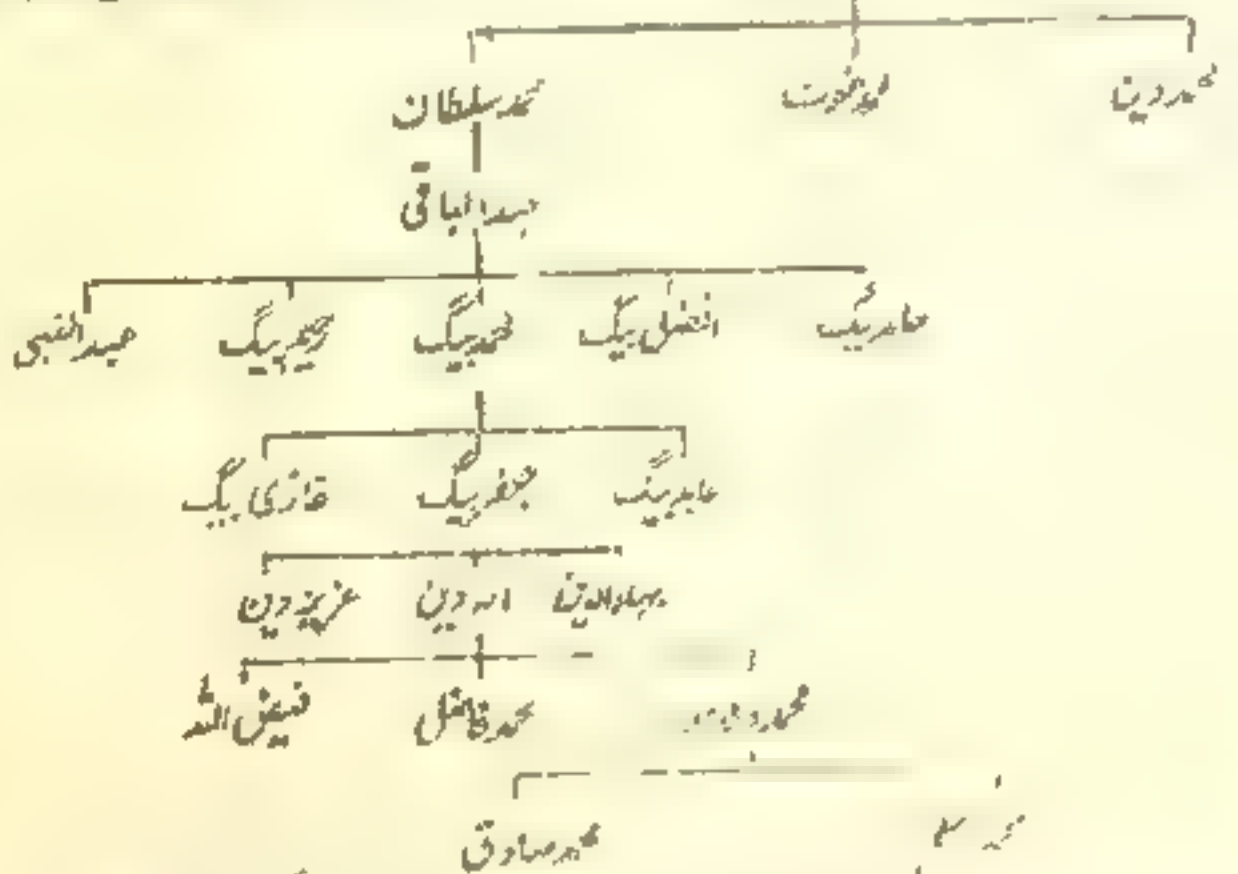 محمد دین محمد سلطان
عبدالباقی
عابد بیگ افضل بیگ محمد بیگ عبدالنبی
عابد بیگ جعفر بیگ غازی بیگ
بہاءالدین الہ دین عزیز دین
محمد فاضل فیض اللہ
محمد صادق